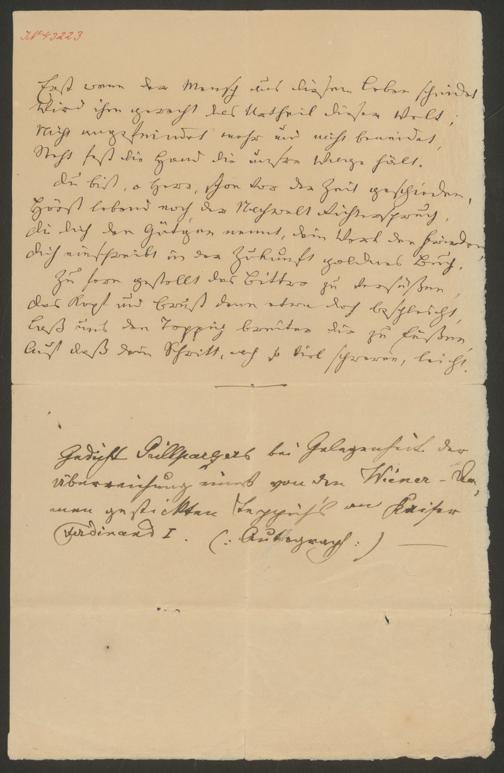 N 43223
Erst wenn der Mensch aus diesem Leben scheidet
Wird ihm gerecht das Urtheil dieser Welt;
Nicht angefeindet mehr und nicht beneidet,
Steht fest die Hand die unsre Wage hält.
Du bist, o Herr, schon vor der Zeit geschieden,
Hörst lebend noch der Nachwelt Richterspruch,
Die dich den Gütgen nennt, dein Werk den Frieden,
Dich einschreibt in der Zukunft goldnes Buch.
Zu fern gestellt das Bittre zu versüßen,
das Kopf und Brust denn etwa doch beschleicht,
Laß uns den Teppich breiten dir zu Füßen,
Auf daß dein Schritt, nach so viel schweren, leicht.
Gedicht Grillparzers bei Gelegenheit der
Überreichung eines von den Wiener-Da-
men gestickten Teppichs an Kaiser
Ferdinand I. (: Autograph :)